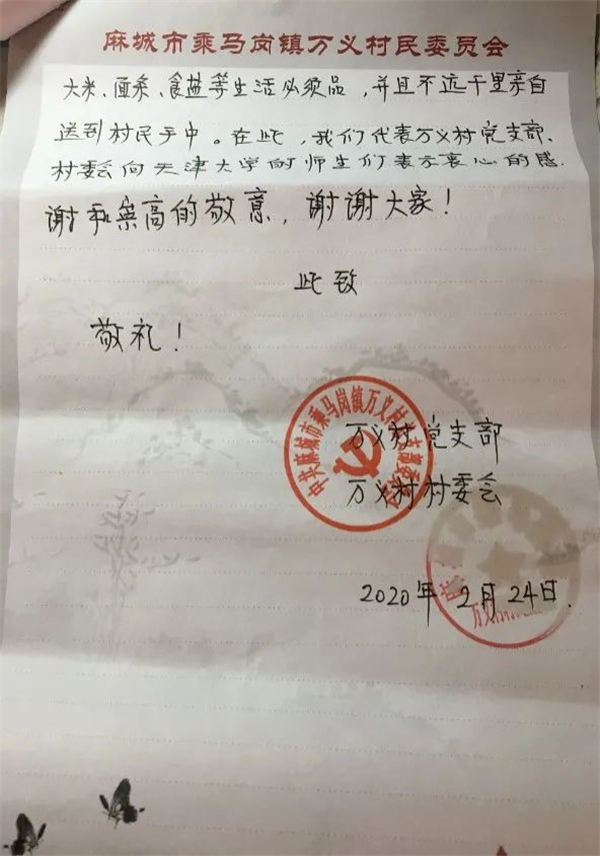 麻城市乘马岗镇万义村民委员会
大米、面条、食盐等生活必须品，并且不远千里亲自
送到村民手中。在此，我们代表万义村党支部、
村委会向天津大学的师生们表示衷心的感
谢和崇高的敬意，谢谢大家！
此致
敬礼！
中共麻城市乘马岗镇万义村
万义村党支部
万义村村委会
2020年2月24日.